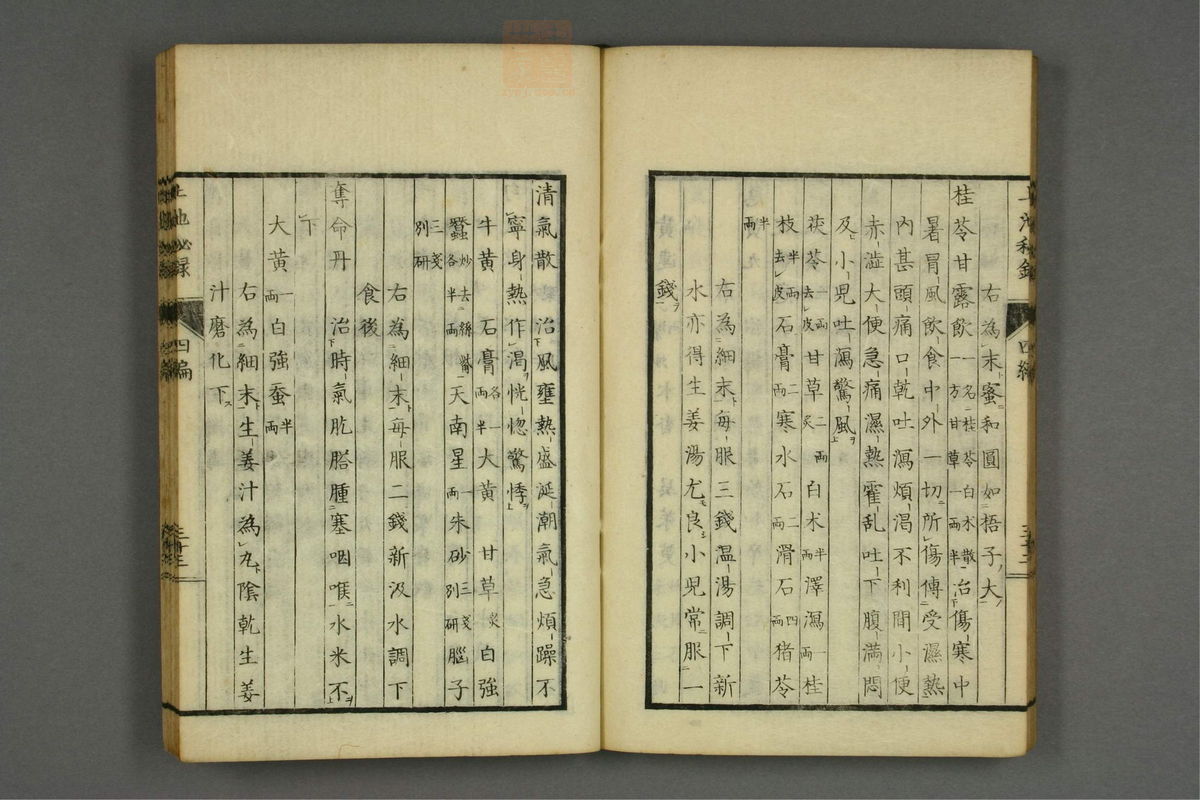 右為末蜜和圓如梧子大
桂苓甘露飲一名桂苓白朮散一方甘草一両半治傷寒中
暑冒風飲食中外一切所傷傳受濕熱
內甚頭痛口乾吐瀉煩渴不利間小便
赤澁大便急痛濕熱霍乱吐下腹滿悶
及小兒吐瀉驚風
茯苓去皮一両甘草二両炙白朮半両澤瀉一両桂
枝半両去皮石膏二両寒水石二両滑石四両猪苓
半両
右為細末每服三錢温湯調下新
水亦得生姜湯尤良小兒常服一
錢
四編
清氣散治風壅熱盛涎潮氣急煩躁不
寧身熱作渴恍惚驚悸
牛黄石膏各一両半大黄甘草炙白強
蠶炒去絲各半両天南星一両朱砂三戔別研腦子
三戔別研
右為細末每服二錢新汲水調下
食後
奪命丹治時氣肐膯腫塞咽喉水米不
下
大黄一両白強蚕半両
右為細末生姜汁為丸陰乾生姜
汁磨化下
四編